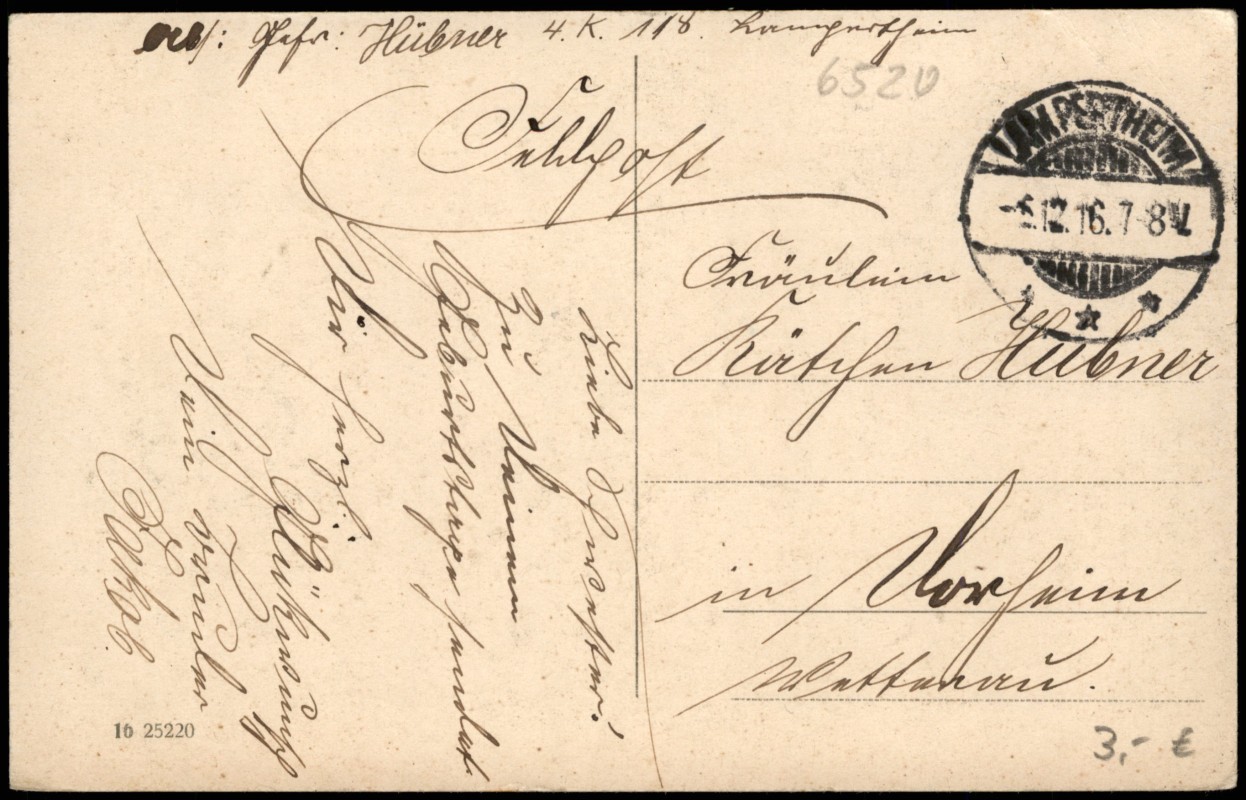 Abs: Gefr: Hübner 4. K. 118. Lampertheim
6520
Feldpost
LAMPERTHEIM
-5.12.16.7-8V.
Fräulein
Kätchen Hübner
in
Wetterau.
Liebe Schwester!
Zu Deinem
Geburtstage sendet
Dir herzl.
Glückwunsch
Dein Bruder
Jakob
16 25220
3,- €